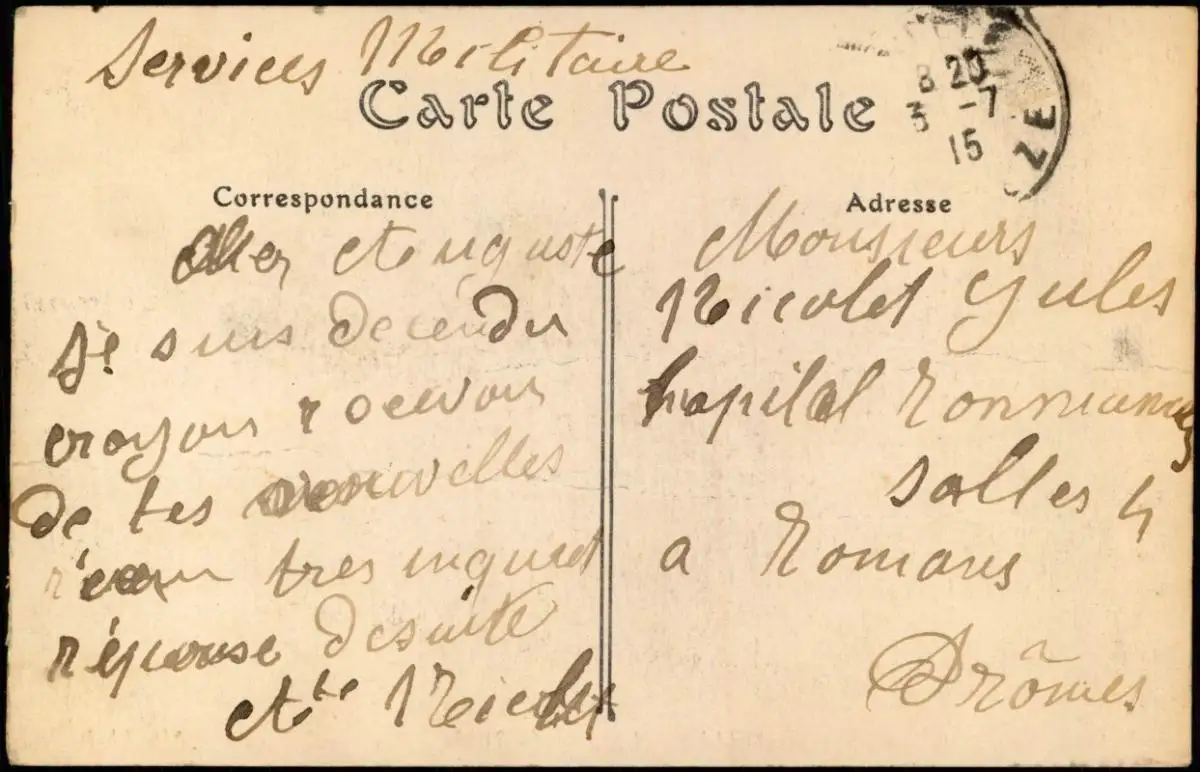 Services Militaire
Carte Postale
8 20
3 -7
15
ZE
Correspondance
Cher Auguste
Je suis decendu
croyons rocevoir
de tes nouvelles
tres inquiet
réponse desuite
Ate Nicolet
Adresse
Monsieurs
Nicolet Jules
hopital Ronmanas
salles 4
a Romans
Drômes